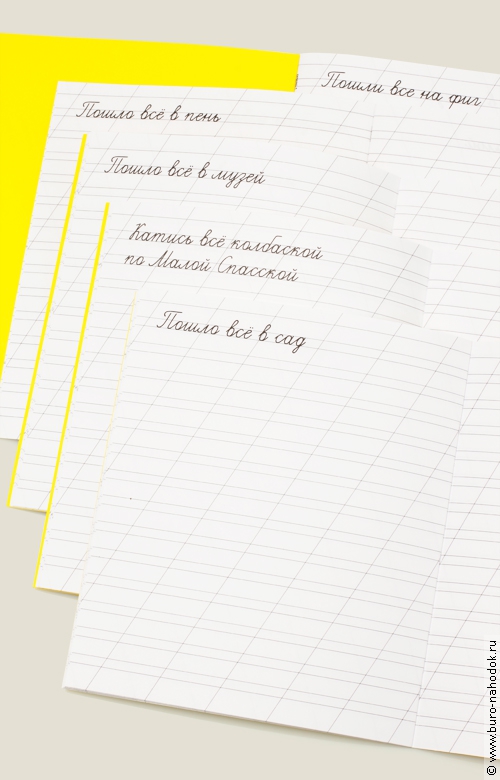 Пошли все на фиг
Пошло всё в пень
Пошло всё в музей
Катись всё колбаской
по Малой Спасской
Пошло всё в сад
© www.buro-nahodok.ru